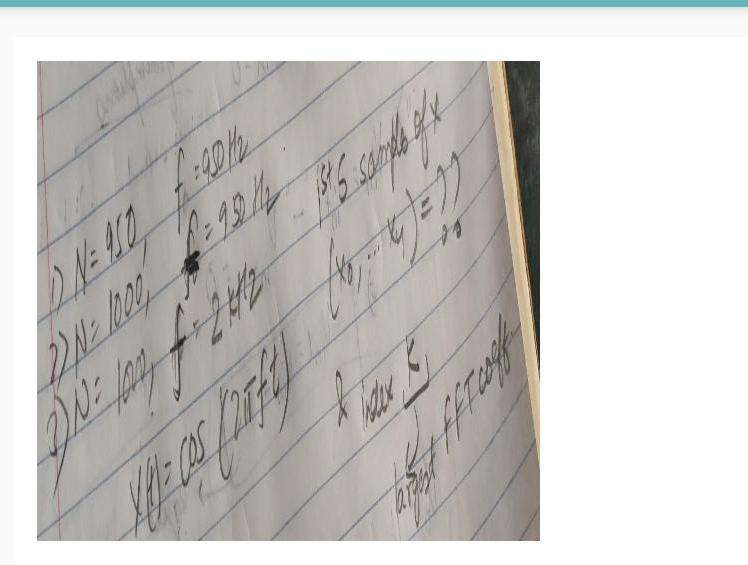 1) N= 950, f=950 Hz
2) N= 1000, f = 950 Hz
3) N= 1000, f = 2 kHz
x(t)= cos (2πft)
- 1st 5 sample of x
(x0, ... x4) = ??
& index k
largest FFT coeff